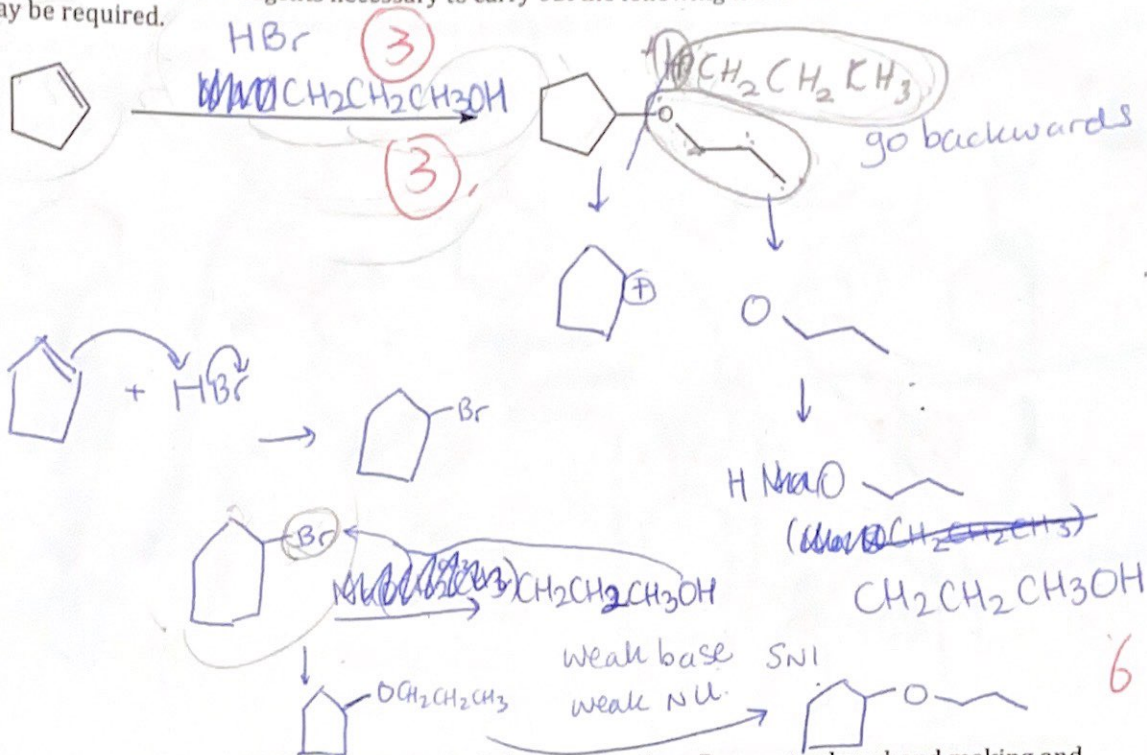 ay be required.
HBr
3
CH2CH2CH3OH
3
CH2CH2CH3
O
go backwards
+
O
+ HBr
Br
H NaO
Br
CH2CH2CH3OH
CH2CH2CH3OH
weak base SN1
weak Nu.
6
OCH2CH2CH3
O